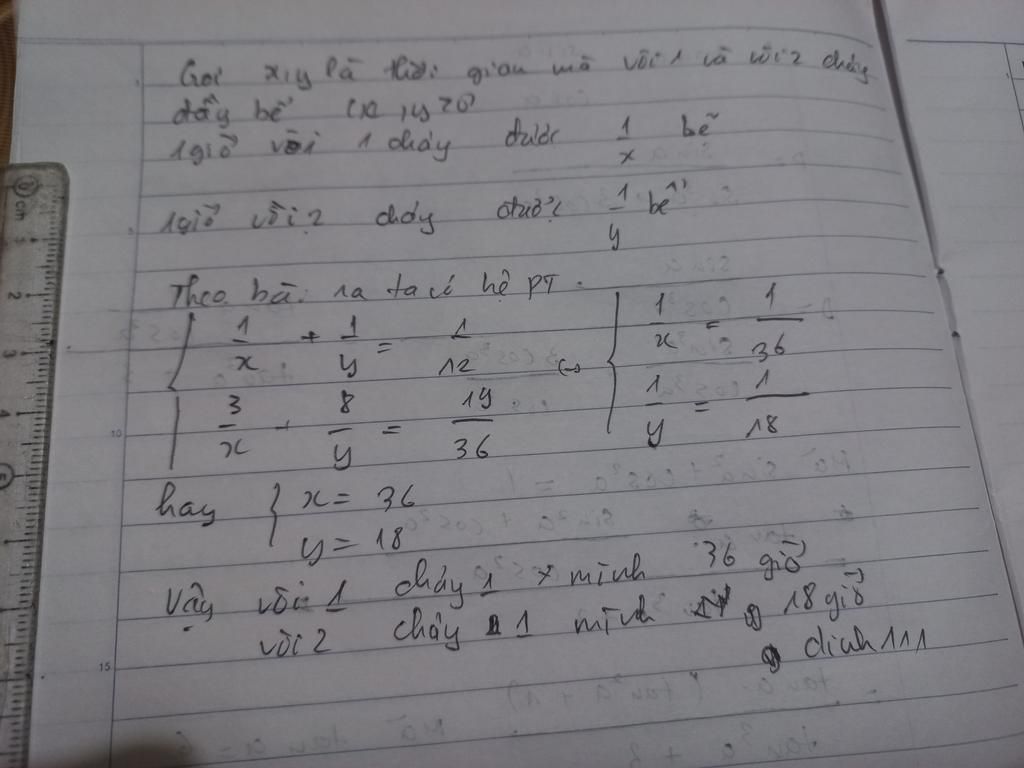 Gọi x,y là thời gian mà vòi 1 và vòi 2 chảy
đầy bể (x,y>0
1 giờ vòi 1 chảy được 1/x bể
1 giờ vòi 2 chảy được 1/y bể
Theo bài ra ta có hệ PT.
{ 1/x + 1/y = 1/12 (-> { 1/x = 1/36
{ 3/x + 8/y = 19/36 { 1/y = 1/18
hay { x = 36
y = 18
Vậy vòi 1 chảy 1 mình 36 giờ
vòi 2 chảy 1 mình 18 giờ
dinh111
10
15
cm
2
3
4